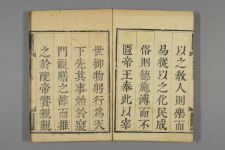 以之教人則樂而
易從以之化民成
俗則德施溥而不
匱帝王奉此以宰
世御物躬行為天
下先其事始於寢
門視膳之節而推
之於配帝饗親覲